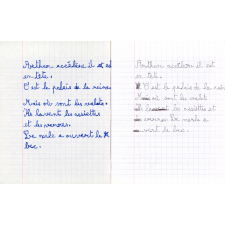 Arthur accélère il est
en tête.
C'est le palais de la reine
Mais où sont les valets.
Ils lavent les assiettes
et les verres.
Le merle a ouvert le
bec.
Arthur accélère il est
en tête.
C'est le palais de la rein
où sont les valets
les assiettes et
Le merle a
vert le bec.